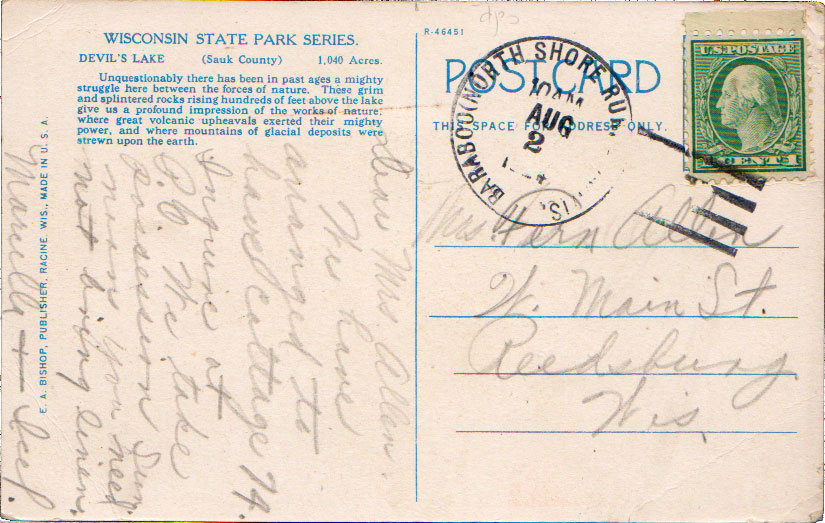 WISCONSIN STATE PARK SERIES.
DEVIL'S LAKE (Sauk County) 1,040 Acres.
Unquestionably there has been in past ages a mighty
struggle here between the forces of nature. These grim
and splintered rocks rising hundreds of feet above the lake
give us a profound impression of the works of nature,
where great volcanic upheavals exerted their mighty
power, and where mountains of glacial deposits were
strewn upon the earth.
E. A. BISHOP, PUBLISHER, RACINE, WIS., MADE IN U. S. A.
Dear Mrs. Allen.
We have
arranged to
have Cottage 74.
Inquire at
P.O. We take
possession Sun.
noon You need
not bring linen.
Marcella +
R-46451
POST CARD
THIS SPACE FOR ADDRESS ONLY.
BARABOO (NORTH SHORE RUR.
10 AM
AUG
2
WIS.
U.S. POSTAGE
1 CENT 1
Mrs Fern Allen
W. Main St.
Reedsburg
Wis.